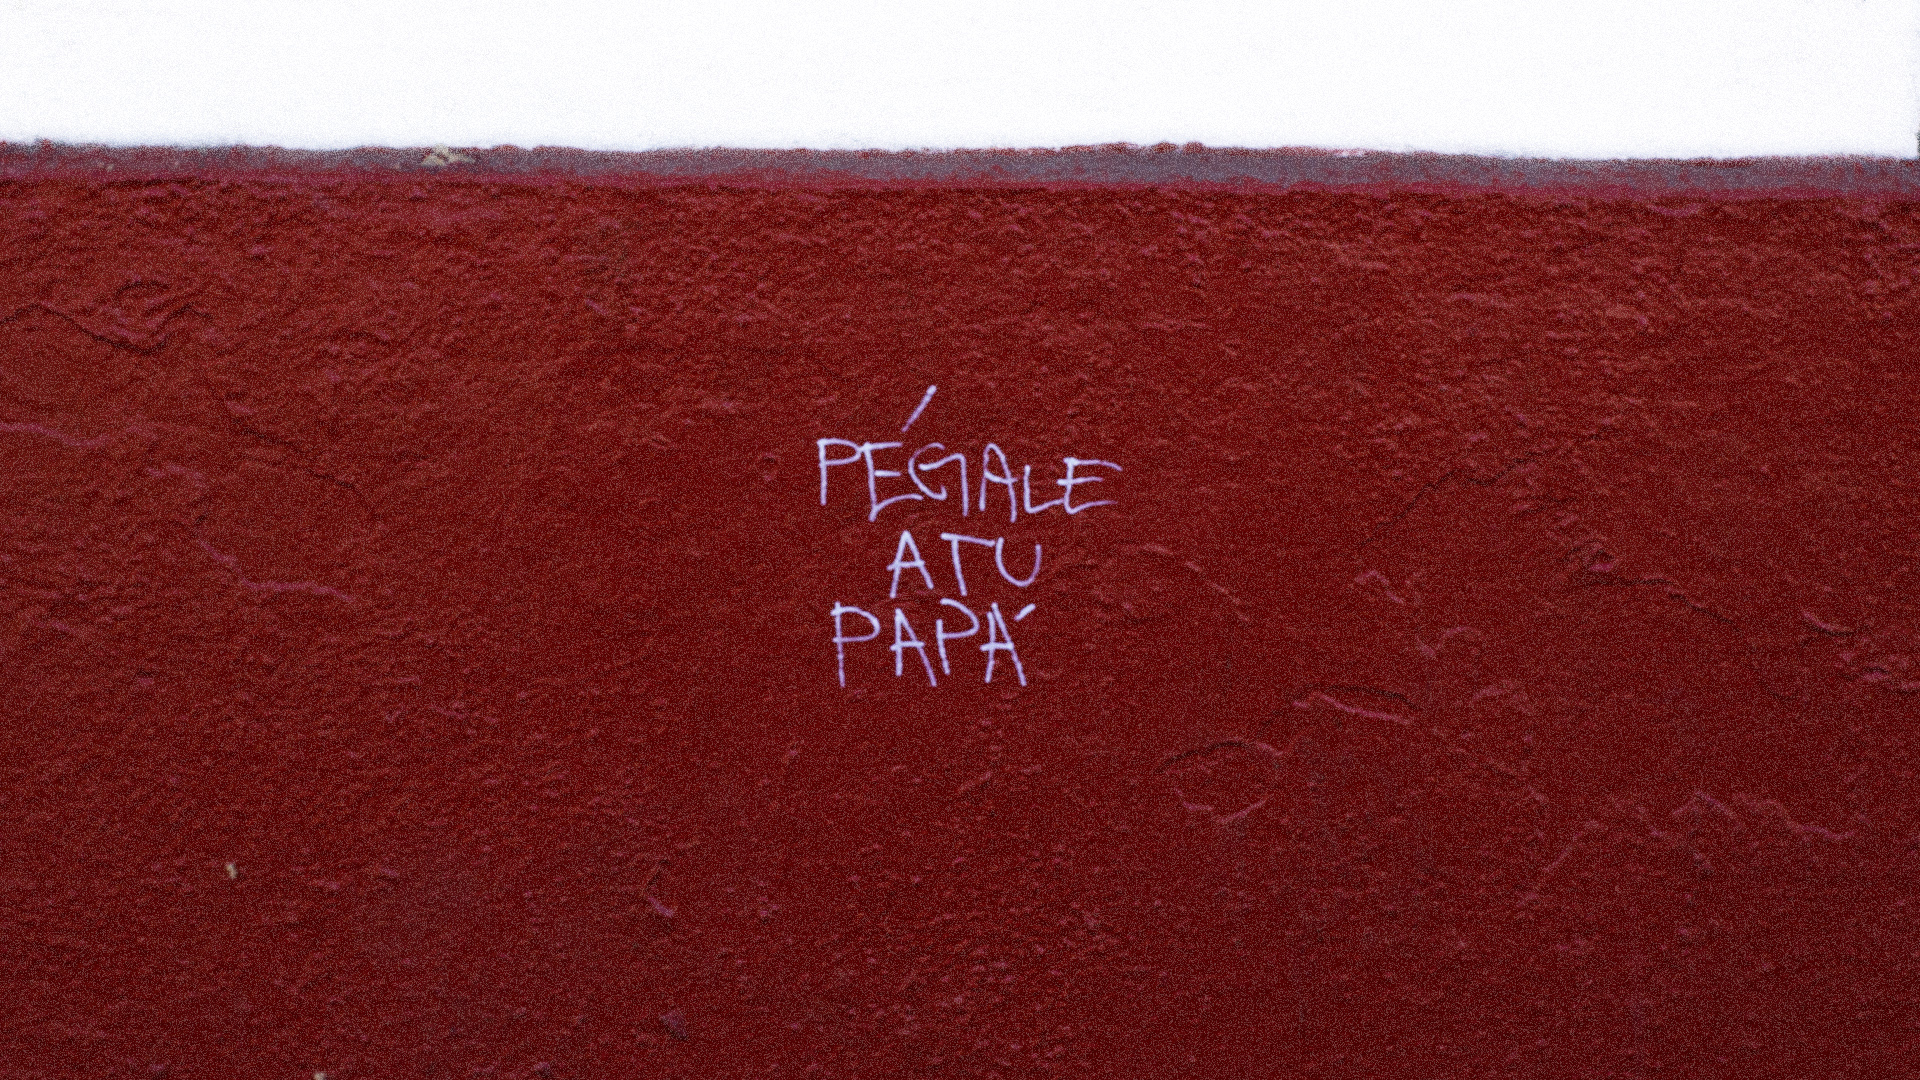 PÉGALE
A TU
PAPÁ